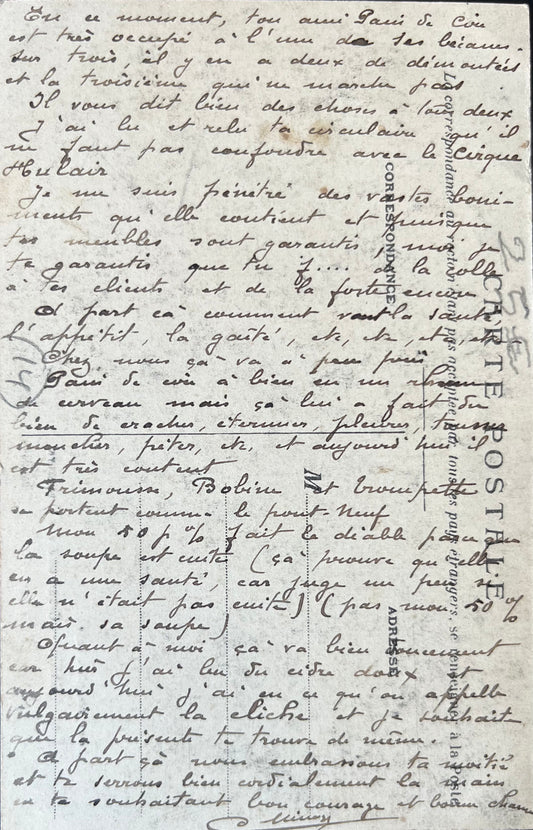 En ce moment, ton ami Pain de Cire
est très occupé à l'une de ses bécanes.
Sur trois, il y en a deux de démontées
et la troisième qui ne marche pas
Il vous dit bien des choses à tous deux
J'ai lu et relu ta circulaire qu'il
ne faut pas confondre avec le Cirque
Hulair
Je me suis pénétré des vastes boni-
ments qu'elle contient et puisque
tes meubles sont garantis, moi je
te garantis que tu f.... de la colle
à tes clients et de la forte encore
A part çà comment vont la santé
l'appétit, la gaîté, etc, etc, etc, etc
Chez nous çà va à peu près
Pain de cire à bien eu un rhume
de cerveau mais çà lui a fait du
bien de cracher, éternuer, pleurer, tousser
moucher, péter, etc, et aujourd'hui il
est très content
Frimousse, Bobine et Trompette
se portent comme le pont-neuf
Mon 50 p % fait le diable parce que
la soupe est cuite (çà prouve qu'elle
en a une santé, car juge un peu si
elle n'était pas cuite) (pas mon 50 %
mais sa soupe)
Quant à moi çà va bien doucement
car hier j'ai bu du cidre doux et
aujourd'hui j'ai eu ce qu'on appelle
vulgairement la cliche et je souhaite
que la présente te trouve de même.
A part çà nous embrassons ta moitié
et te serrons bien cordialement la main
en te souhaitant bon courage et bonne chance
CARTE POSTALE
La correspondance au recto n'étant pas acceptée par tous les pays étrangers, se renseigner à la Poste
CORRESPONDANCE
ADRESSE
M
(14)